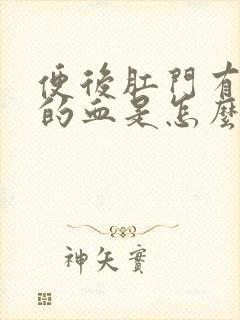 便後肛門有
的血是怎麼
神矢實